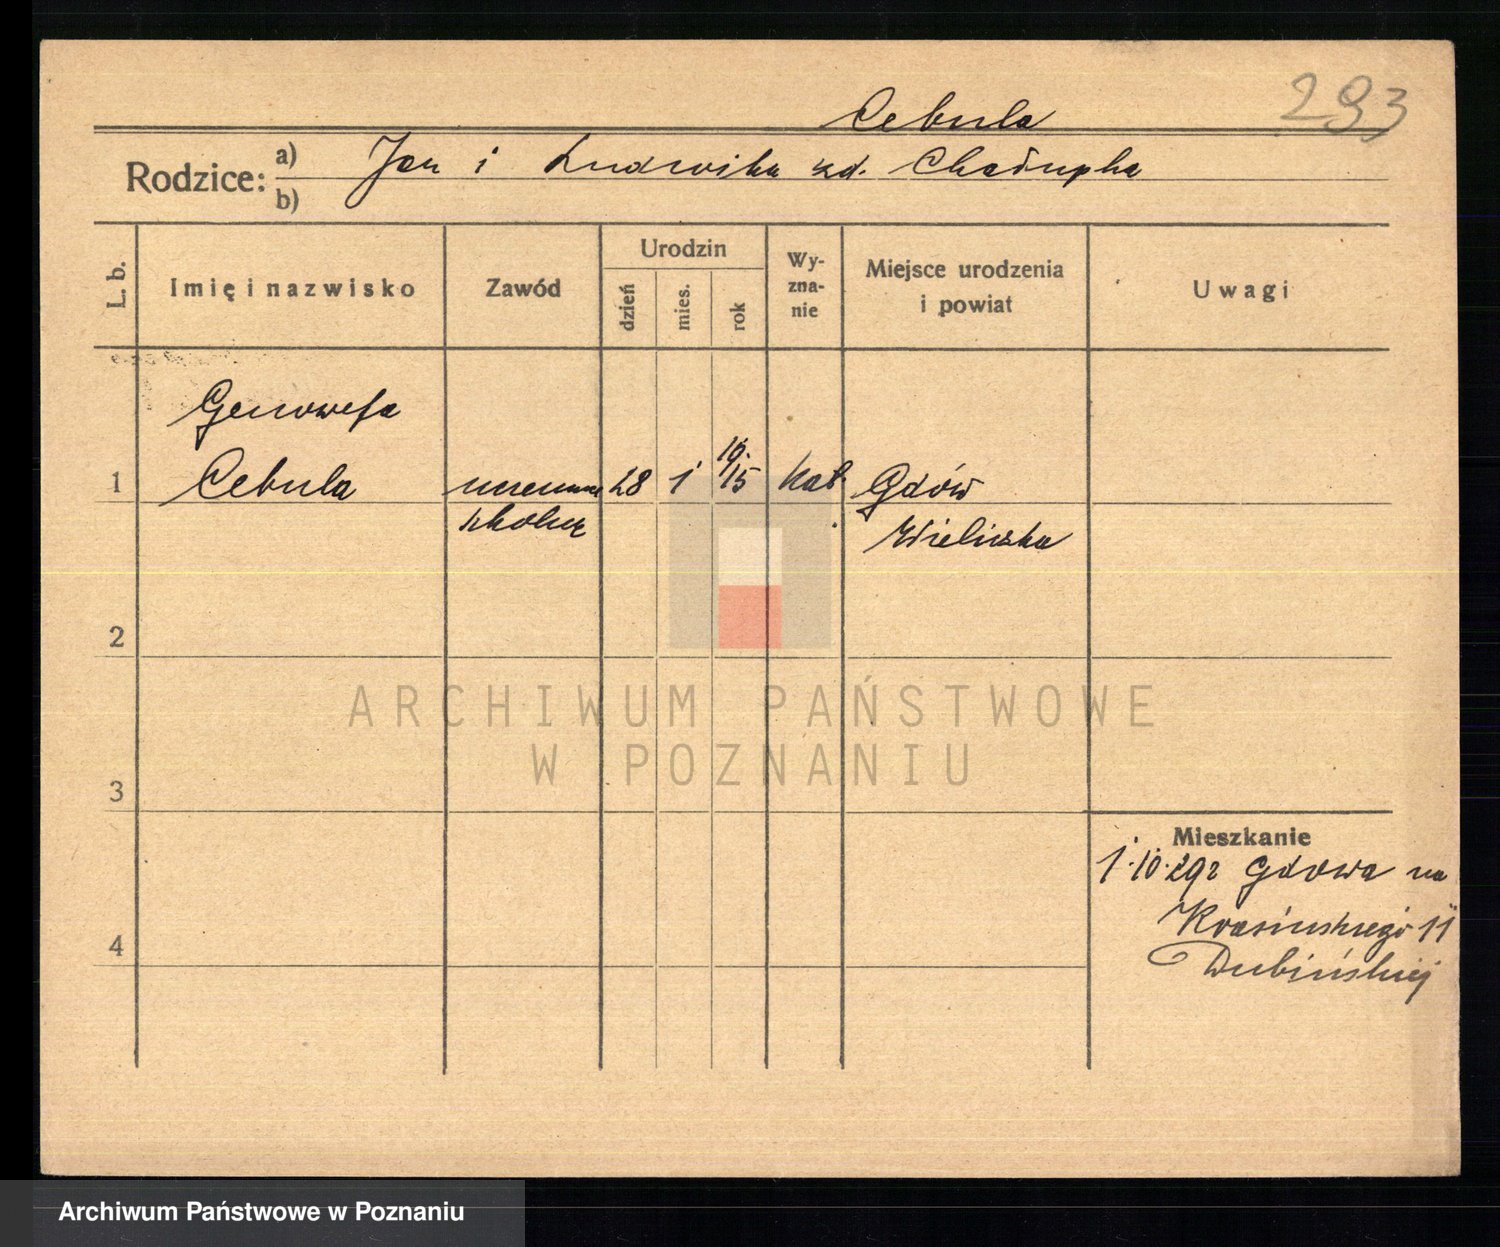 293
Cebula
Rodzice: a) Jan i Ludwika zd. Chałupka
b)
L. b.
Imię i nazwisko
Zawód
Urodzin
dzień
mies.
rok
Wy-
zna-
nie
Miejsce urodzenia
i powiat
Uwagi
Genowefa
1 Cebula 28 1 19/15 kat. Gdów
szkolny Wieliczka
2
3
4
Mieszkanie
1.10.29 z Gdowa na
Krasińskiego 11
Dubińskiej
ARCHIWUM PAŃSTWOWE
W POZNANIU
Archiwum Państwowe w Poznaniu